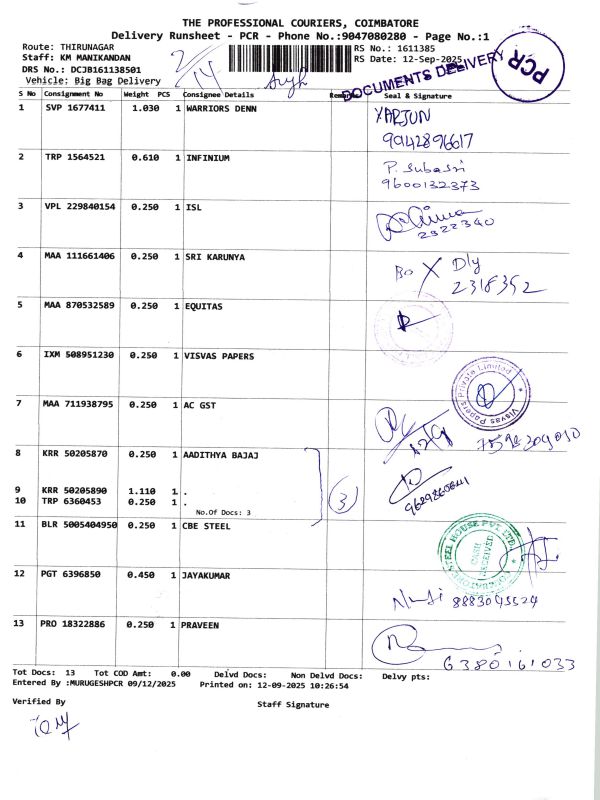 THE PROFESSIONAL COURIERS, COIMBATORE
Delivery Runsheet - PCR - Phone No.:9047080280 - Page No.:1
Route: THIRUNAGAR
RS No.: 1611385
Staff: KM MANIKANDAN
RS Date: 12-Sep-2025
DRS No.: DCJB161138501
Vehicle: Big Bag Delivery
2/14
DOCUMENTS DELIVERY
PCR
S No Consignment No Weight PCS Consignee Details Remarks Seal & Signature
1 SVP 1677411 1.030 1 WARRIORS DENN
YARJUN
9942896617
2 TRP 1564521 0.610 1 INFINIUM
P. Subasri
9600132373
3 VPL 229840154 0.250 1 ISL
2322340
4 MAA 111661406 0.250 1 SRI KARUNYA
Bo X Dly
2318352
5 MAA 870532589 0.250 1 EQUITAS
6 IXM 508951230 0.250 1 VISVAS PAPERS
Visvas Papers Private Limited
7 MAA 711938795 0.250 1 AC GST
7598209010
8 KRR 50205870 0.250 1 AADITHYA BAJAJ
9 KRR 50205890 1.110 1 .
10 TRP 6360453 0.250 1 .
No.Of Docs: 3
3
11 BLR 5005404950 0.250 1 CBE STEEL
STEEL HOUSE PVT LTD
CASH RECEIVED
COIMBATORE
12 PGT 6396850 0.450 1 JAYAKUMAR
8883045524
13 PRO 18322886 0.250 1 PRAVEEN
6380161033
Tot Docs: 13 Tot COD Amt: 0.00 Delvd Docs: Non Delvd Docs: Delvy pts:
Entered By :MURUGESHPCR 09/12/2025 Printed on: 12-09-2025 10:26:54
Verified By
Staff Signature